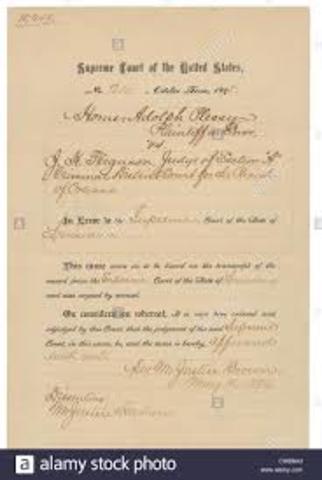 Supreme Court of the United States,
No. 210, October Term, 1895.
Homer Adolph Plessy
Plaintiff in Error,
vs.
J. H. Ferguson, Judge of Section "A"
Criminal District Court for the Parish
of Orleans
In Error to the Supreme Court of the State of
Louisiana
This cause came on to be heard on the transcript of the
record from the Supreme Court of the State of Louisiana
and was argued by counsel.
On consideration whereof, It is now here ordered and
adjudged by this Court that the judgment of the said Supreme
Court, in this cause, be, and the same is hereby, affirmed
with costs.
Per Mr. Justice Brown,
May 18, 1896.
Dissenting:
Mr. Justice Harlan
a alamy stock photo
www.alamy.com